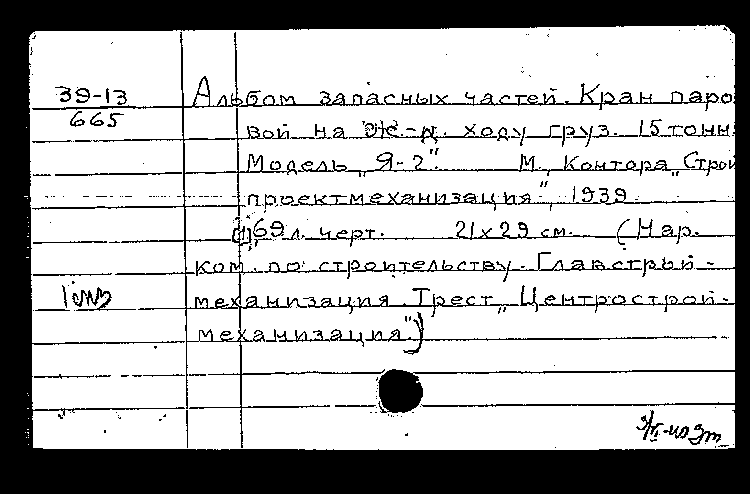 39-13
665
Альбом запасных частей. Кран паро
вой на ж.-д. ходу груз. 15 тонн.
Модель „Я-2". М., Контора „Строй
проектмеханизация", 1939.
[1], 69 л. черт. 21х29 см. (Нар.
ком. по строительству. Главстрой-
механизация. Трест „Центрострой-
механизация".)